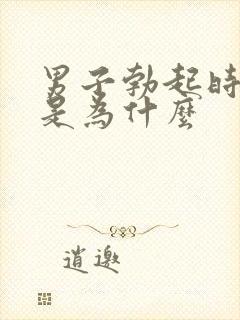 男子勃起時
是為什麼
逍邀